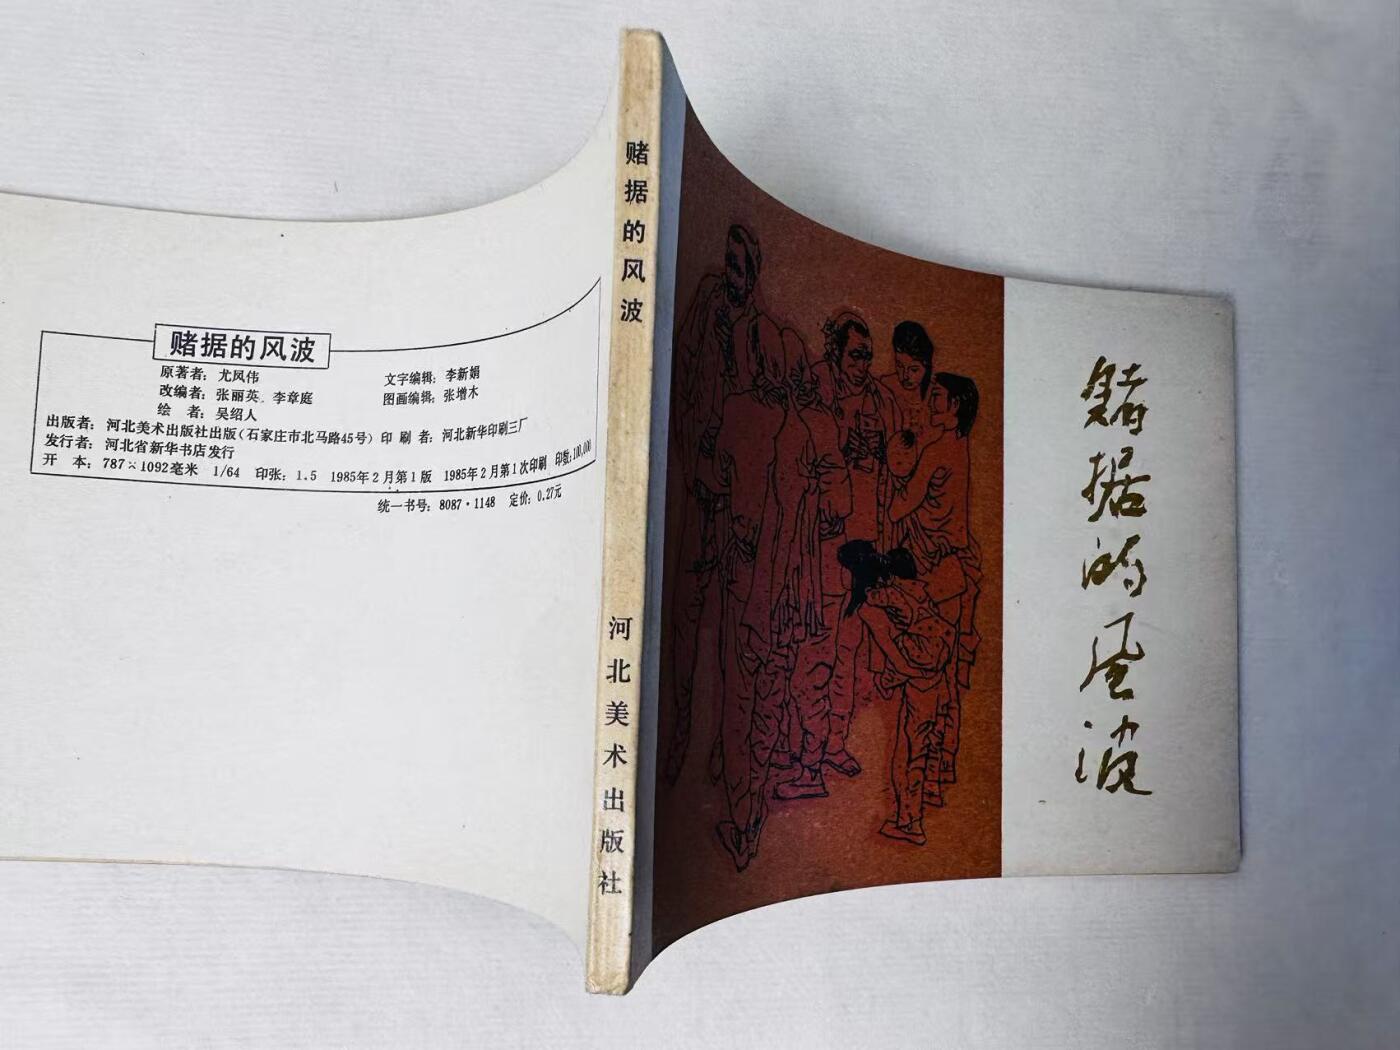 赌据的风波
原著者：尤凤伟 文字编辑：李新娟
改编者：张丽英 李章庭 图画编辑：张增木
绘 者：吴绍人
出版者：河北美术出版社出版(石家庄市北马路45号) 印 刷 者：河北新华印刷三厂
发行者：河北省新华书店发行
开 本：787×1092毫米 1/64 印张：1.5 1985年2月第1版 1985年2月第1次印刷 印数：100,000
统一书号：8087·1148 定价：0.27元
赌据的风波
河北美术出版社
赌据的风波